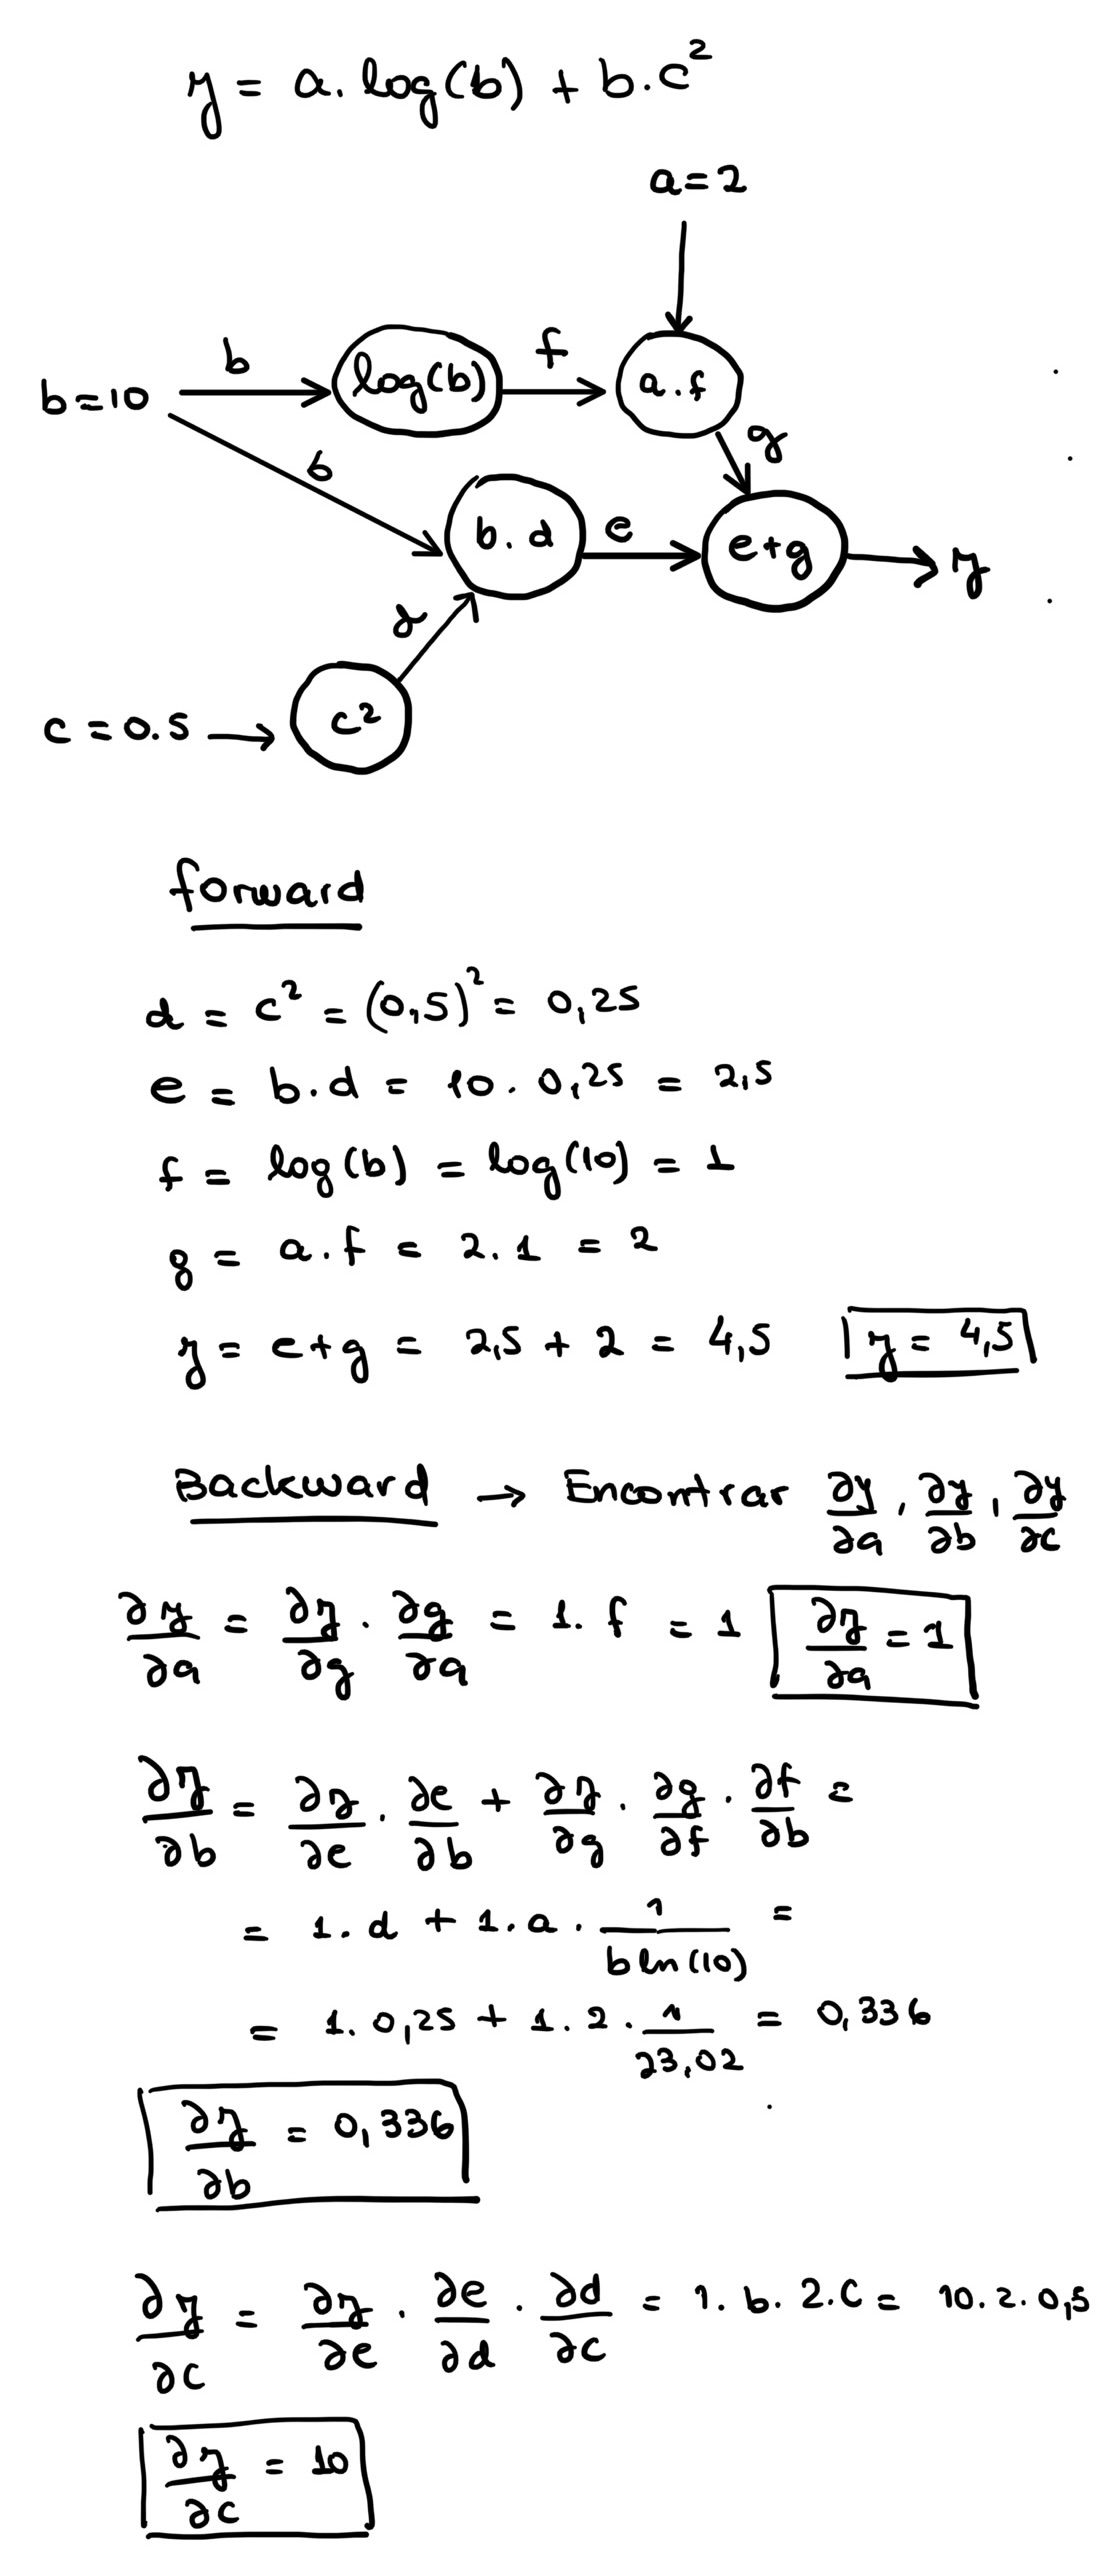 y = a. log(b) + b.c²
a=2
b=10
b
log(b)
f
a.f
g
b
b.d
e
e+g
y
d
c = 0.5
c²
forward
d = c² = (0,5)² = 0,25
e = b.d = 10. 0,25 = 2,5
f = log(b) = log(10) = 1
g = a.f = 2.1 = 2
y = e+g = 2,5 + 2 = 4,5 y = 4,5
Backward → Encontrar ∂y/∂a, ∂y/∂b, ∂y/∂c
∂y/∂a = ∂y/∂g . ∂g/∂a = 1. f = 1 ∂y/∂a = 1
∂y/∂b = ∂y/∂e . ∂e/∂b + ∂y/∂g . ∂g/∂f . ∂f/∂b =
= 1. d + 1. a . 1/(b ln(10)) =
= 1. 0,25 + 1. 2 . 1/23,02 = 0,336
∂y/∂b = 0,336
∂y/∂c = ∂y/∂e . ∂e/∂d . ∂d/∂c = 1. b. 2.c = 10. 2. 0,5
∂y/∂c = 10